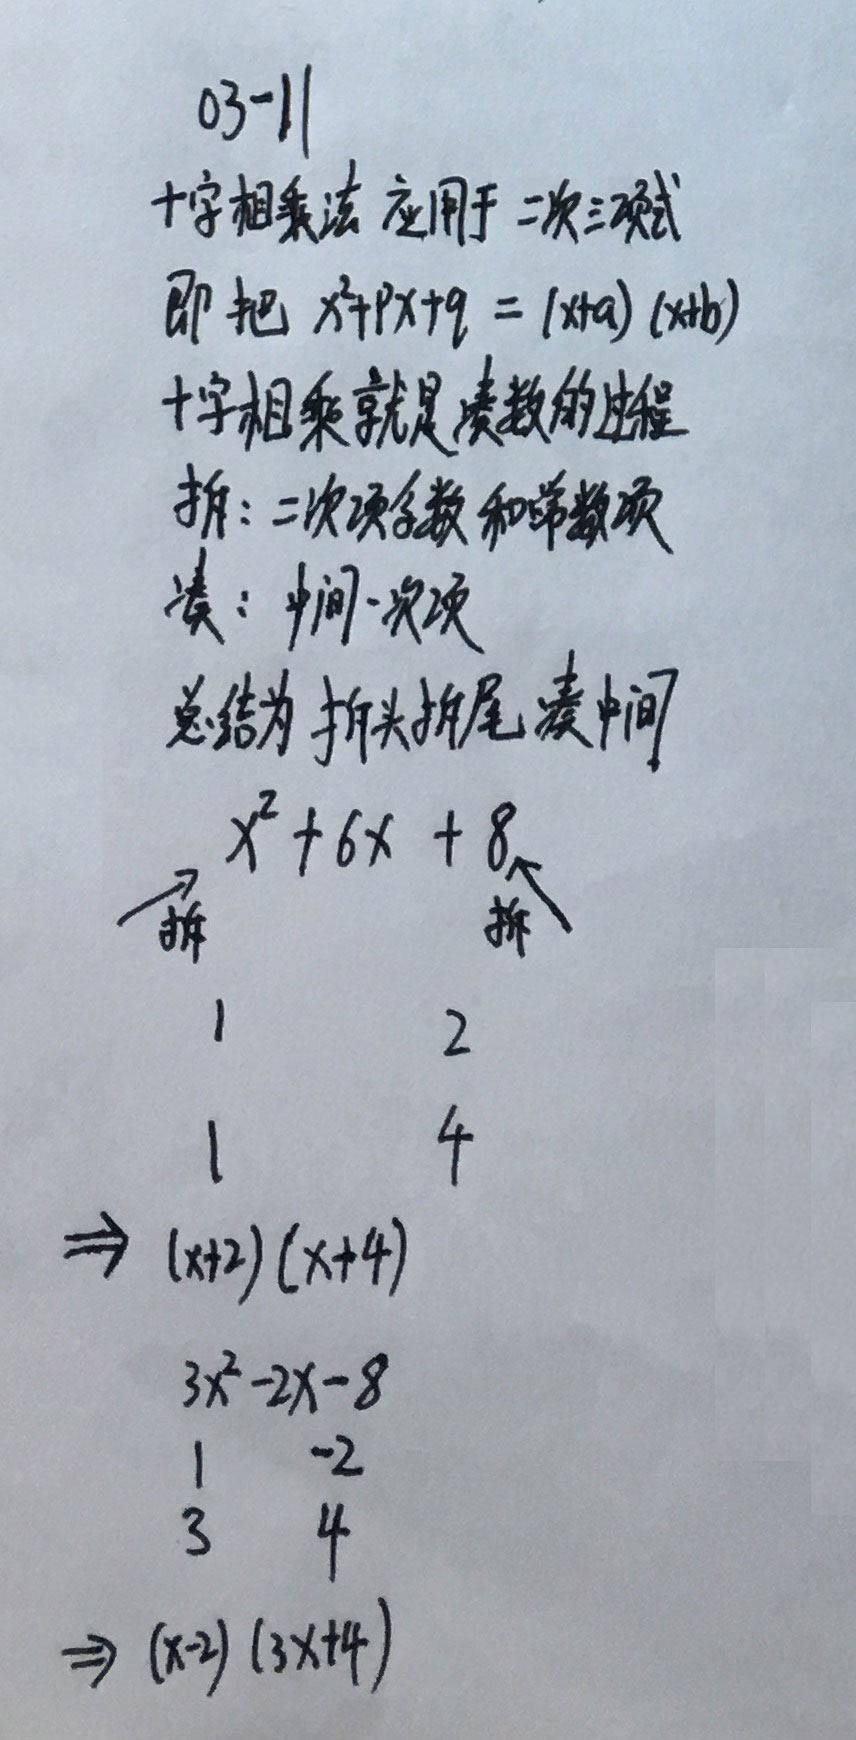 03-11
十字相乘法 应用于 二次三项式
即把 x²+px+q = (x+a)(x+b)
十字相乘就是凑数的过程
拆：二次项系数和常数项
凑：中间一次项
总结为 拆头拆尾 凑中间
x²+6x+8
拆 拆
1 2
1 4
⇒ (x+2)(x+4)
3x²-2x-8
1 -2
3 4
⇒ (x-2)(3x+4)